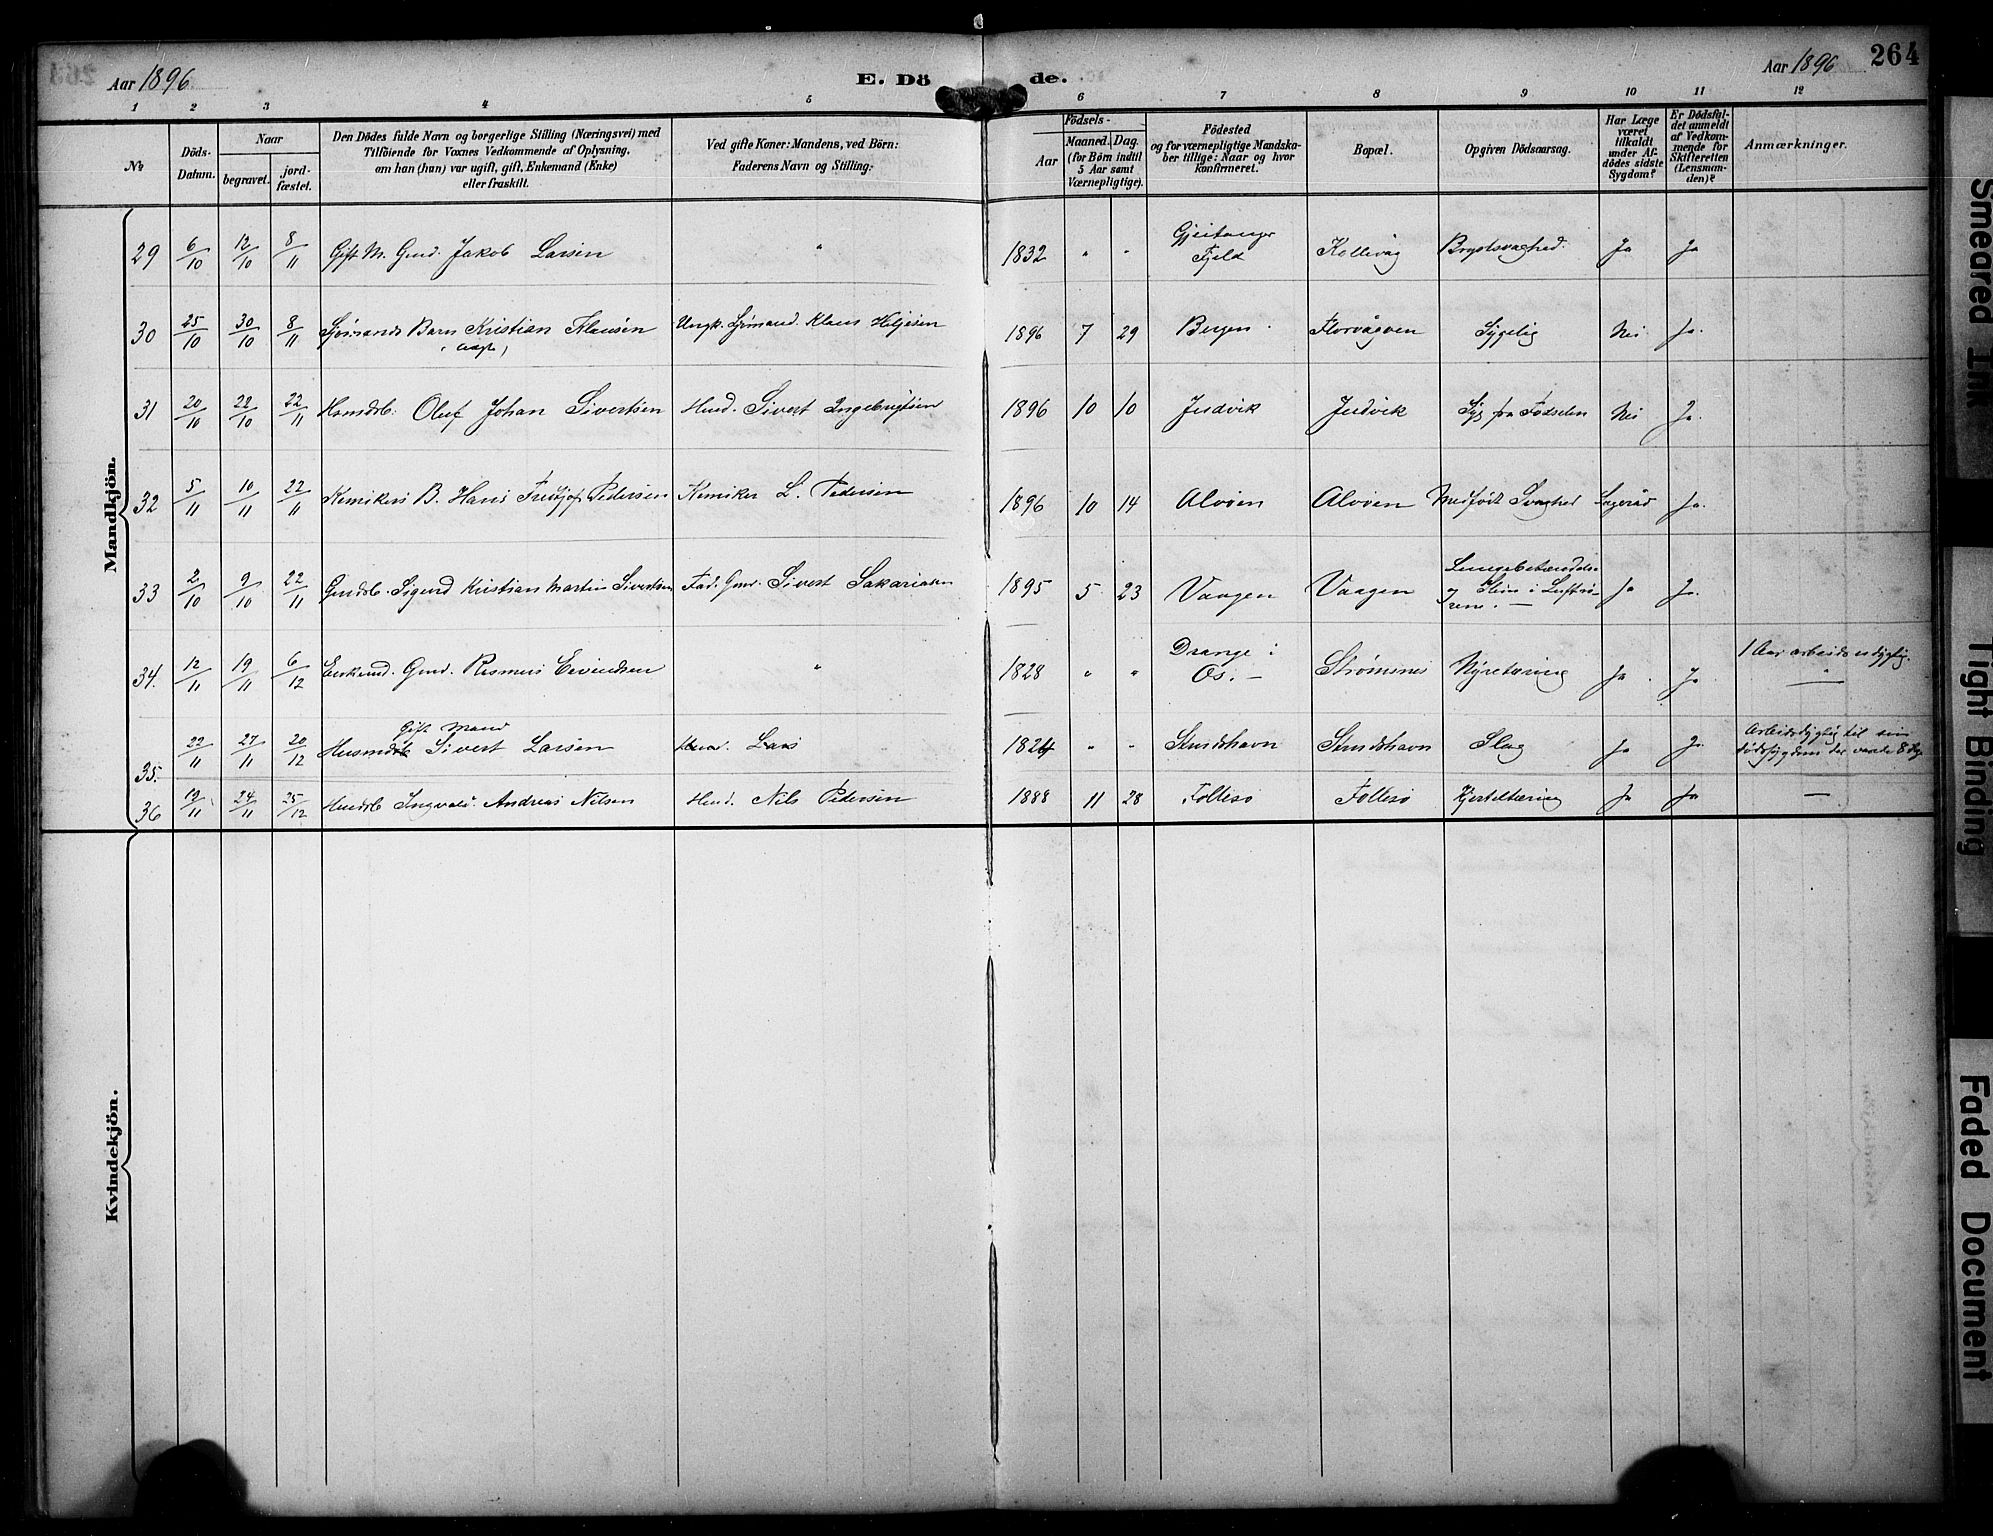 Aar 1896.
E. Dö de.
Aar 1896
264
1 2 3 4 5 6 7 8 9 10 11 12
№
Döds-Datum.
Naar
begravet.
jord-fæstet.
Den Dödes fulde Navn og borgerlige Stilling (Næringsvei) med
Tilföiende for Voxnes Vedkommende af Oplysning,
om han (hun) var ugift, gift, Enkemand (Enke)
eller fraskilt.
Ved gifte Koner: Mandens, ved Börn:
Faderens Navn og Stilling:
Födsels-
Aar
Maaned. Dag.
(for Börn indtil
5 Aar samt
Værnepligtige).
Födested
og for værnepligtige Mandska-
ber tillige: Naar og hvor
konfirmeret.
Bopæl.
Opgiven Dödsaarsag.
Har Læge
været
tilkaldt
under Af-
dödes sidste
Sygdom?
Er Dödsfal-
det anmeldt
af Vedkom-
mende for
Skifteretten
(Lensman-
den)?
Anmærkninger.
Mandkjön.
29 6/10 12/10 8/11 Gift M. Gmd. Jakob Larsen " 1832 " " Gjeitanger Fjeld Kollevåg Brystsvaghed. Ja Ja
30 25/10 30/10 8/11 Sjømands Barn Kristian Klausen Ungk. Sjømand. Klaus Heljesen 1896 7 29 Bergen Florvågøen Sygelig Nei Ja.
31 20/10 22/10 22/11 Oluf Johan Sivertsen Husd. Sivert Ingebrigtsen 1896 10 10 Judvik Judvik Syg fra Fødselen Nei Ja.
32 5/11 10/11 22/11 Kemikers B. Hans Fridtjof Pedersen Kemiker L. Pedersen 1896 10 14 Alvøen Alvøen Medfødt Svaghed Ja.
33 2/10 9/10 22/11 Gmdsb. Sigurd Kristian Martin Sivertsen Fad. Gmd. Sivert Sakariasen 1895 5 23 Vaagen Vaagen Lungebetændelse og Slim i Luftrørene. — Ja Ja.
34. 12/11 19/11 6/12 Enkemd. Gmd. Rasmus Eevindsen " 1828 " " Drange i Os. — Strømsnes Nyretæring Ja Ja 1 Aar arbeidsudygtig.
35. 22/11 27/11 20/12 Gift Mand Husmd Sivert Larsen Lars 1824 " " Strudshavn Strudshavn Slag Ja Ja. Arbeidsdygtig til sin dødssygdom der varede 8 Dg.
36 19/11 24/11 25/12 Husdsb Ingvald Andreas Nilsen Husd. Nils Petersen 1888 11 28 Follesø Follesø Kjerteltæring Ja Ja —
Kvindekjön.
Smeared Ink
Tight Binding
Faded Document